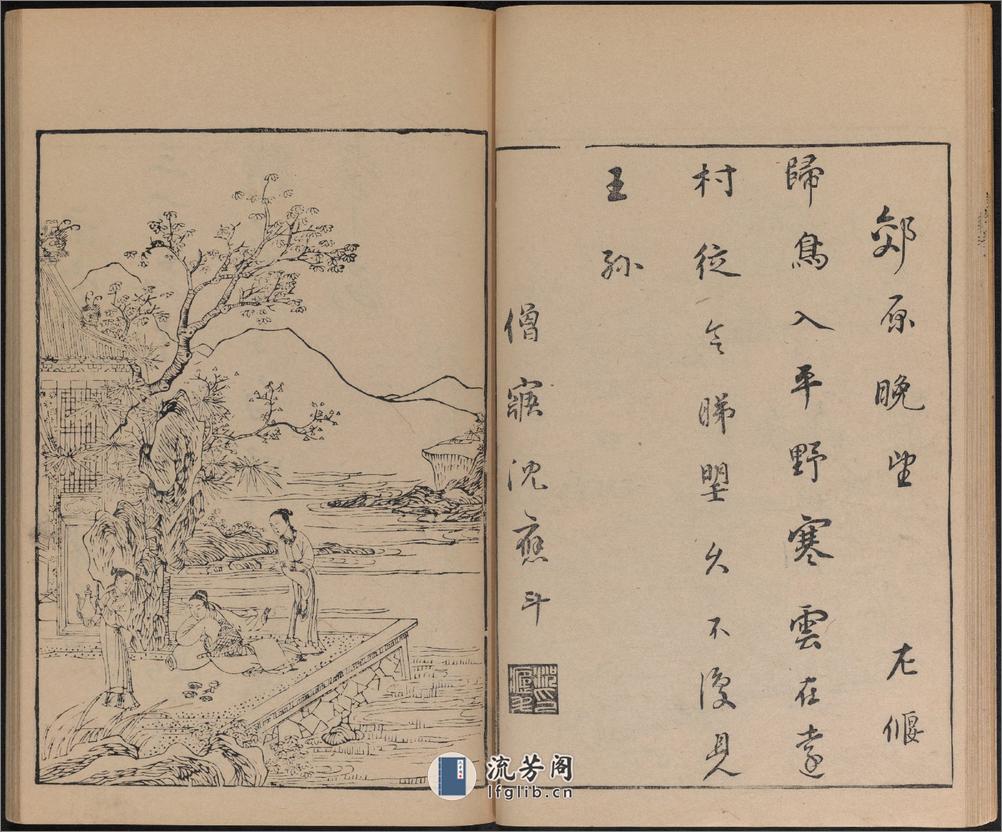 郊原晚望 左偃
歸鳥入平野寒雲在遠
村徒令睇朢久不復見
王孫
僧 沈應斗
流芳阁
lfglib.cn